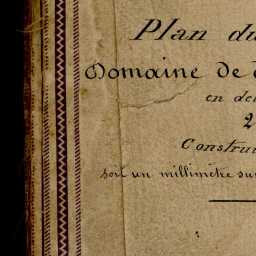 Plan du
Domaine de
en de
2
Constru
soit un millimètre su